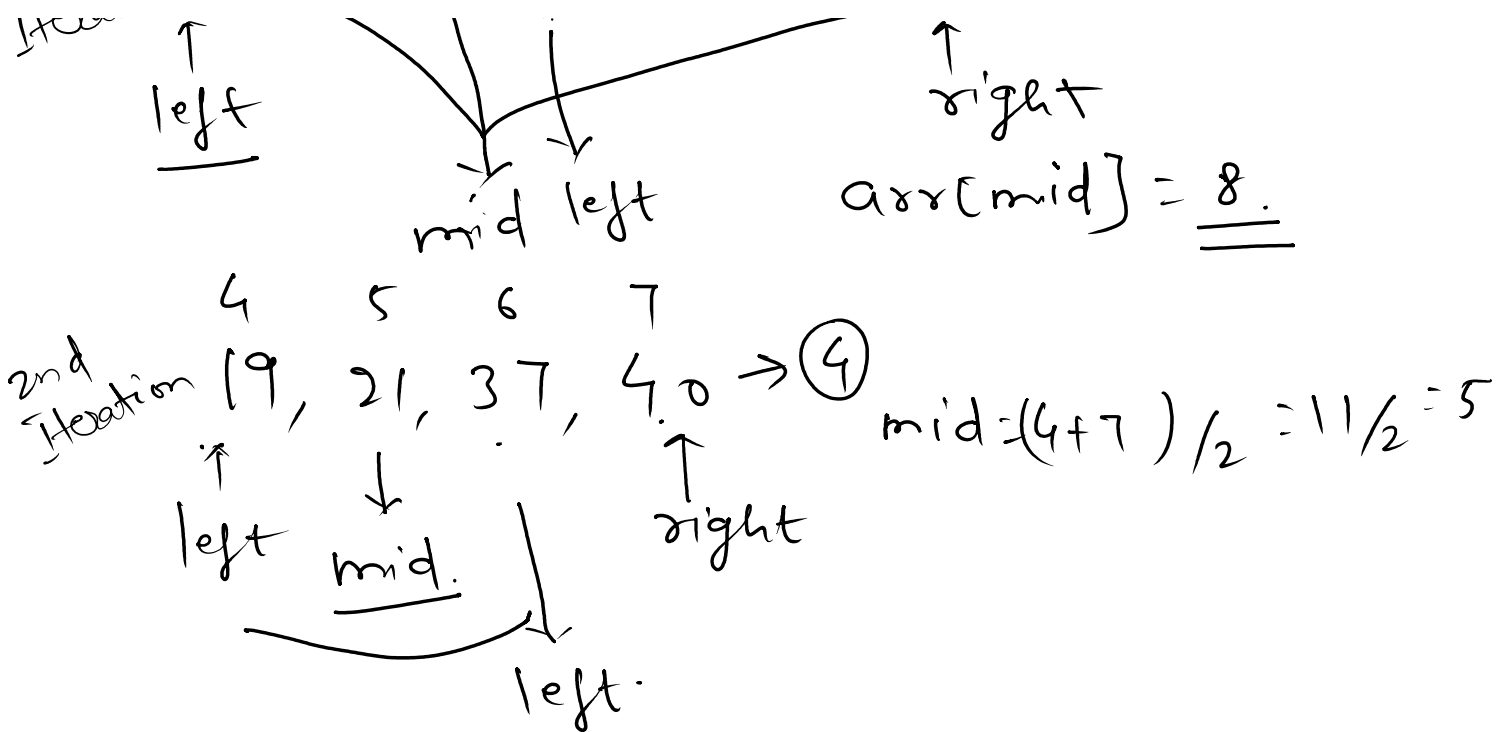 left
right
mid left
arr[mid] = 8.
4 5 6 7
2nd
Iteration 19, 21, 37, 40 → 4
mid=(4+7)/2 = 11/2 = 5
left mid. right
left.